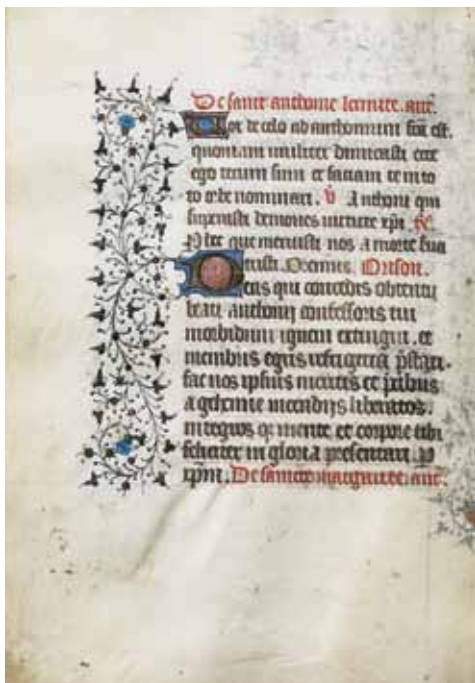 De saint anthoine lermite. ant̄.
Vox de celo ad anthonium fc̄a est.
quoniam viriliter dimicasti ecce
ego tecum sum et faciam te in to
to orbe nominari. v̄ Anthoni qui
demones victute xp̄i
nos a morte sua
Oremus. Orison.
Deus qui concedis obtentu
beati anthonij confessoris tui
morbidum ignem extingui. et
membris egris refrigeria p̄stari.
fac nos ipsius meritis et p̄cibus
a gehenne incendijs liberatos.
integros mente et corpore tibi
feliciter in gloria presentari. P
xp̄m. De saincte marguerite. ant̄.